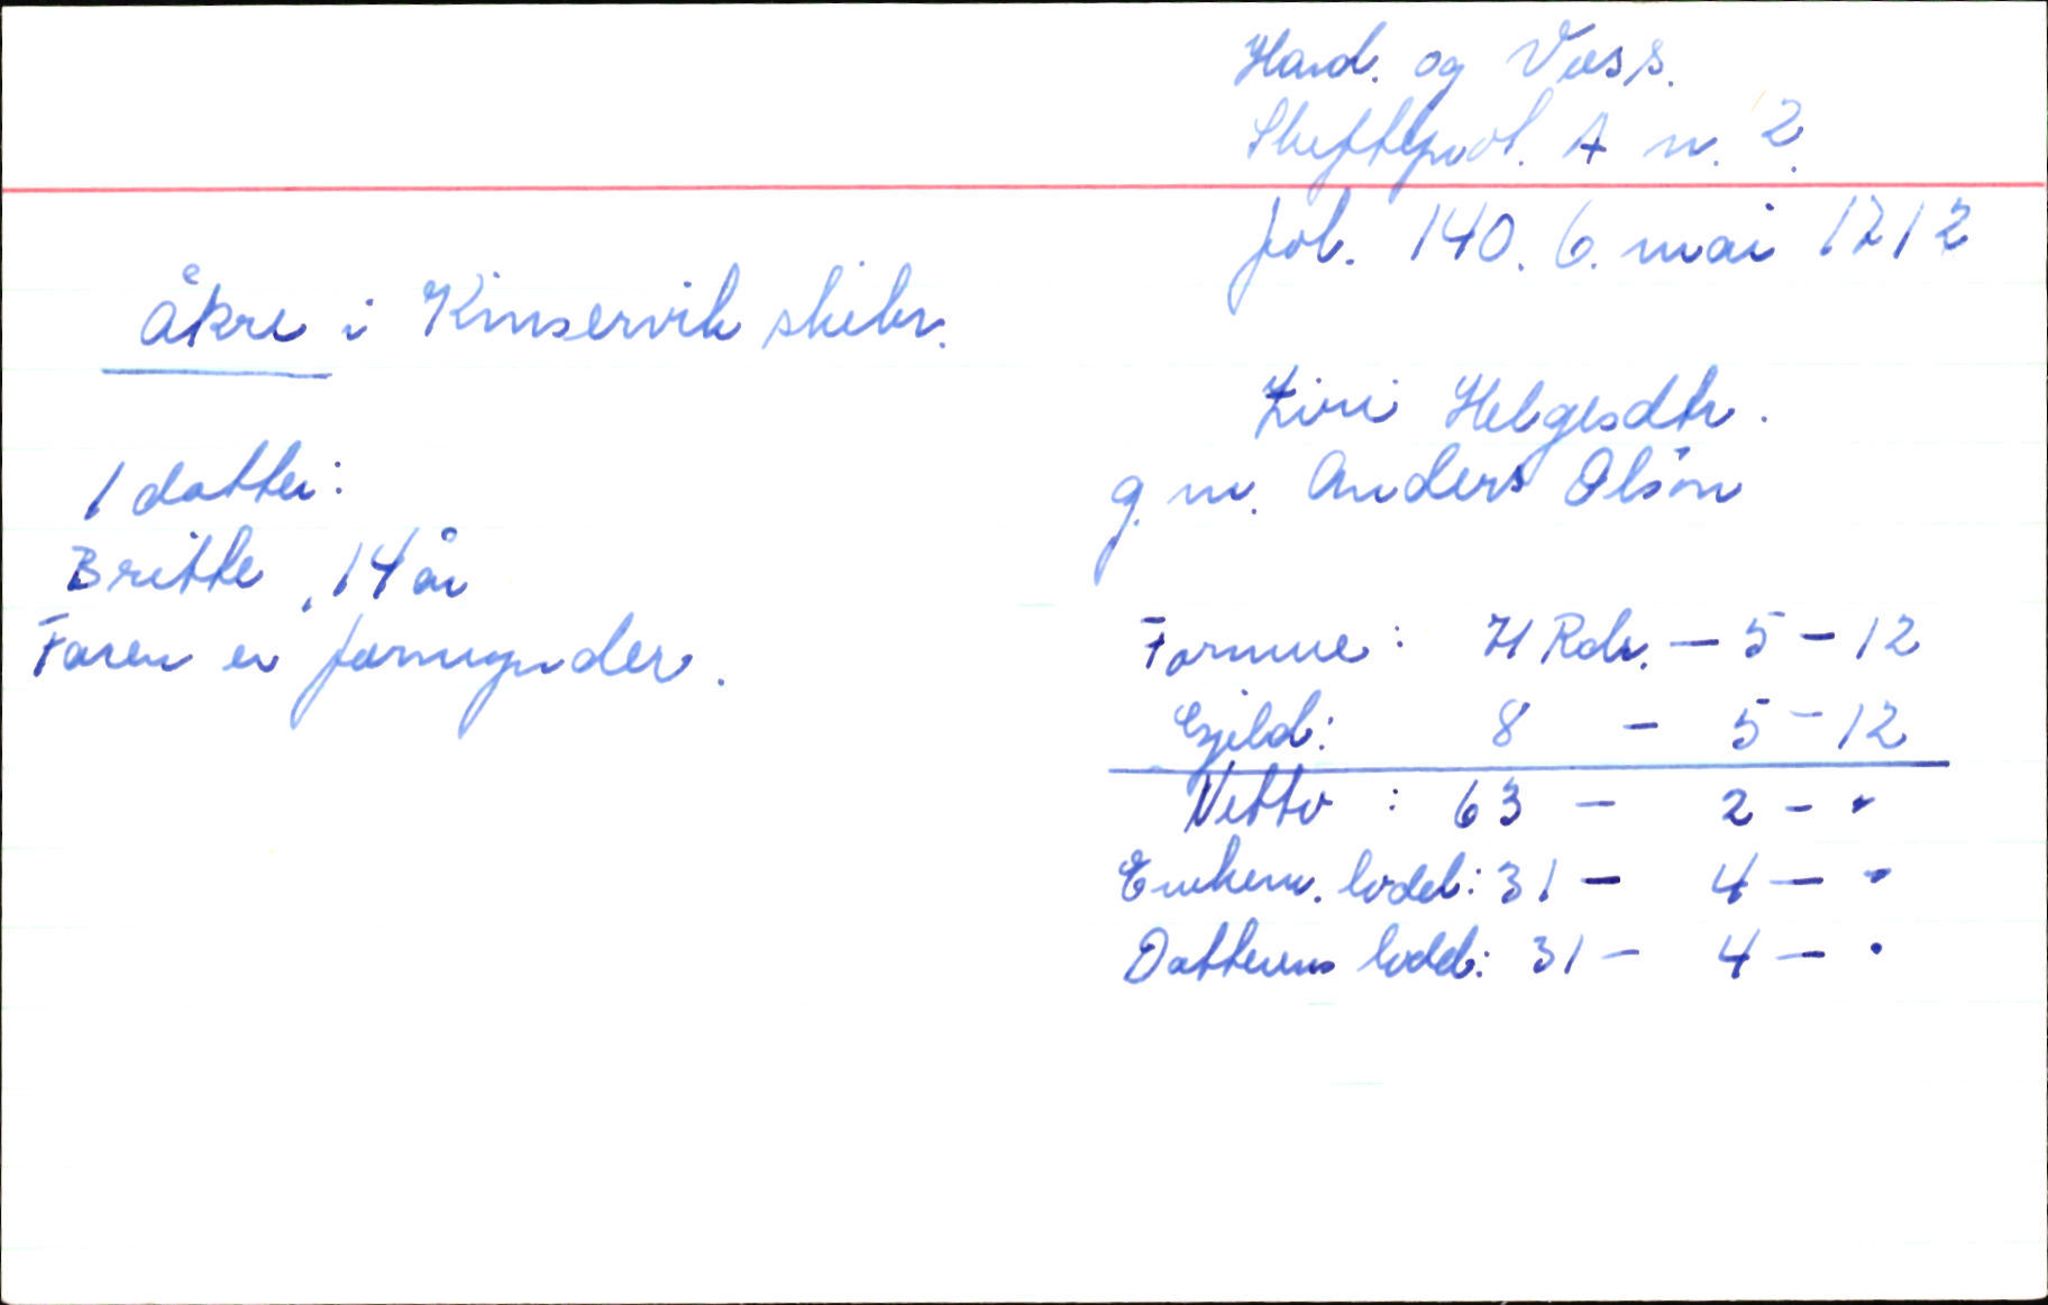 Hard. og Voss.
Skifteprot. A nr. 2.
fol. 140. 6. mai 1712
Åkre i Kinservik skibr.
Livi Helgesdtr.
g. m. Anders Olsøn
1 datter:
Britte, 14 år
Faren er formynder.
Formue: 71 Rdr. - 5 - 12
Gjeld: 8 - 5 - 12
Netto: 63 - 2 - "
Enkem. lodd: 31 - 4 - "
Datterens lodd: 31 - 4 - "